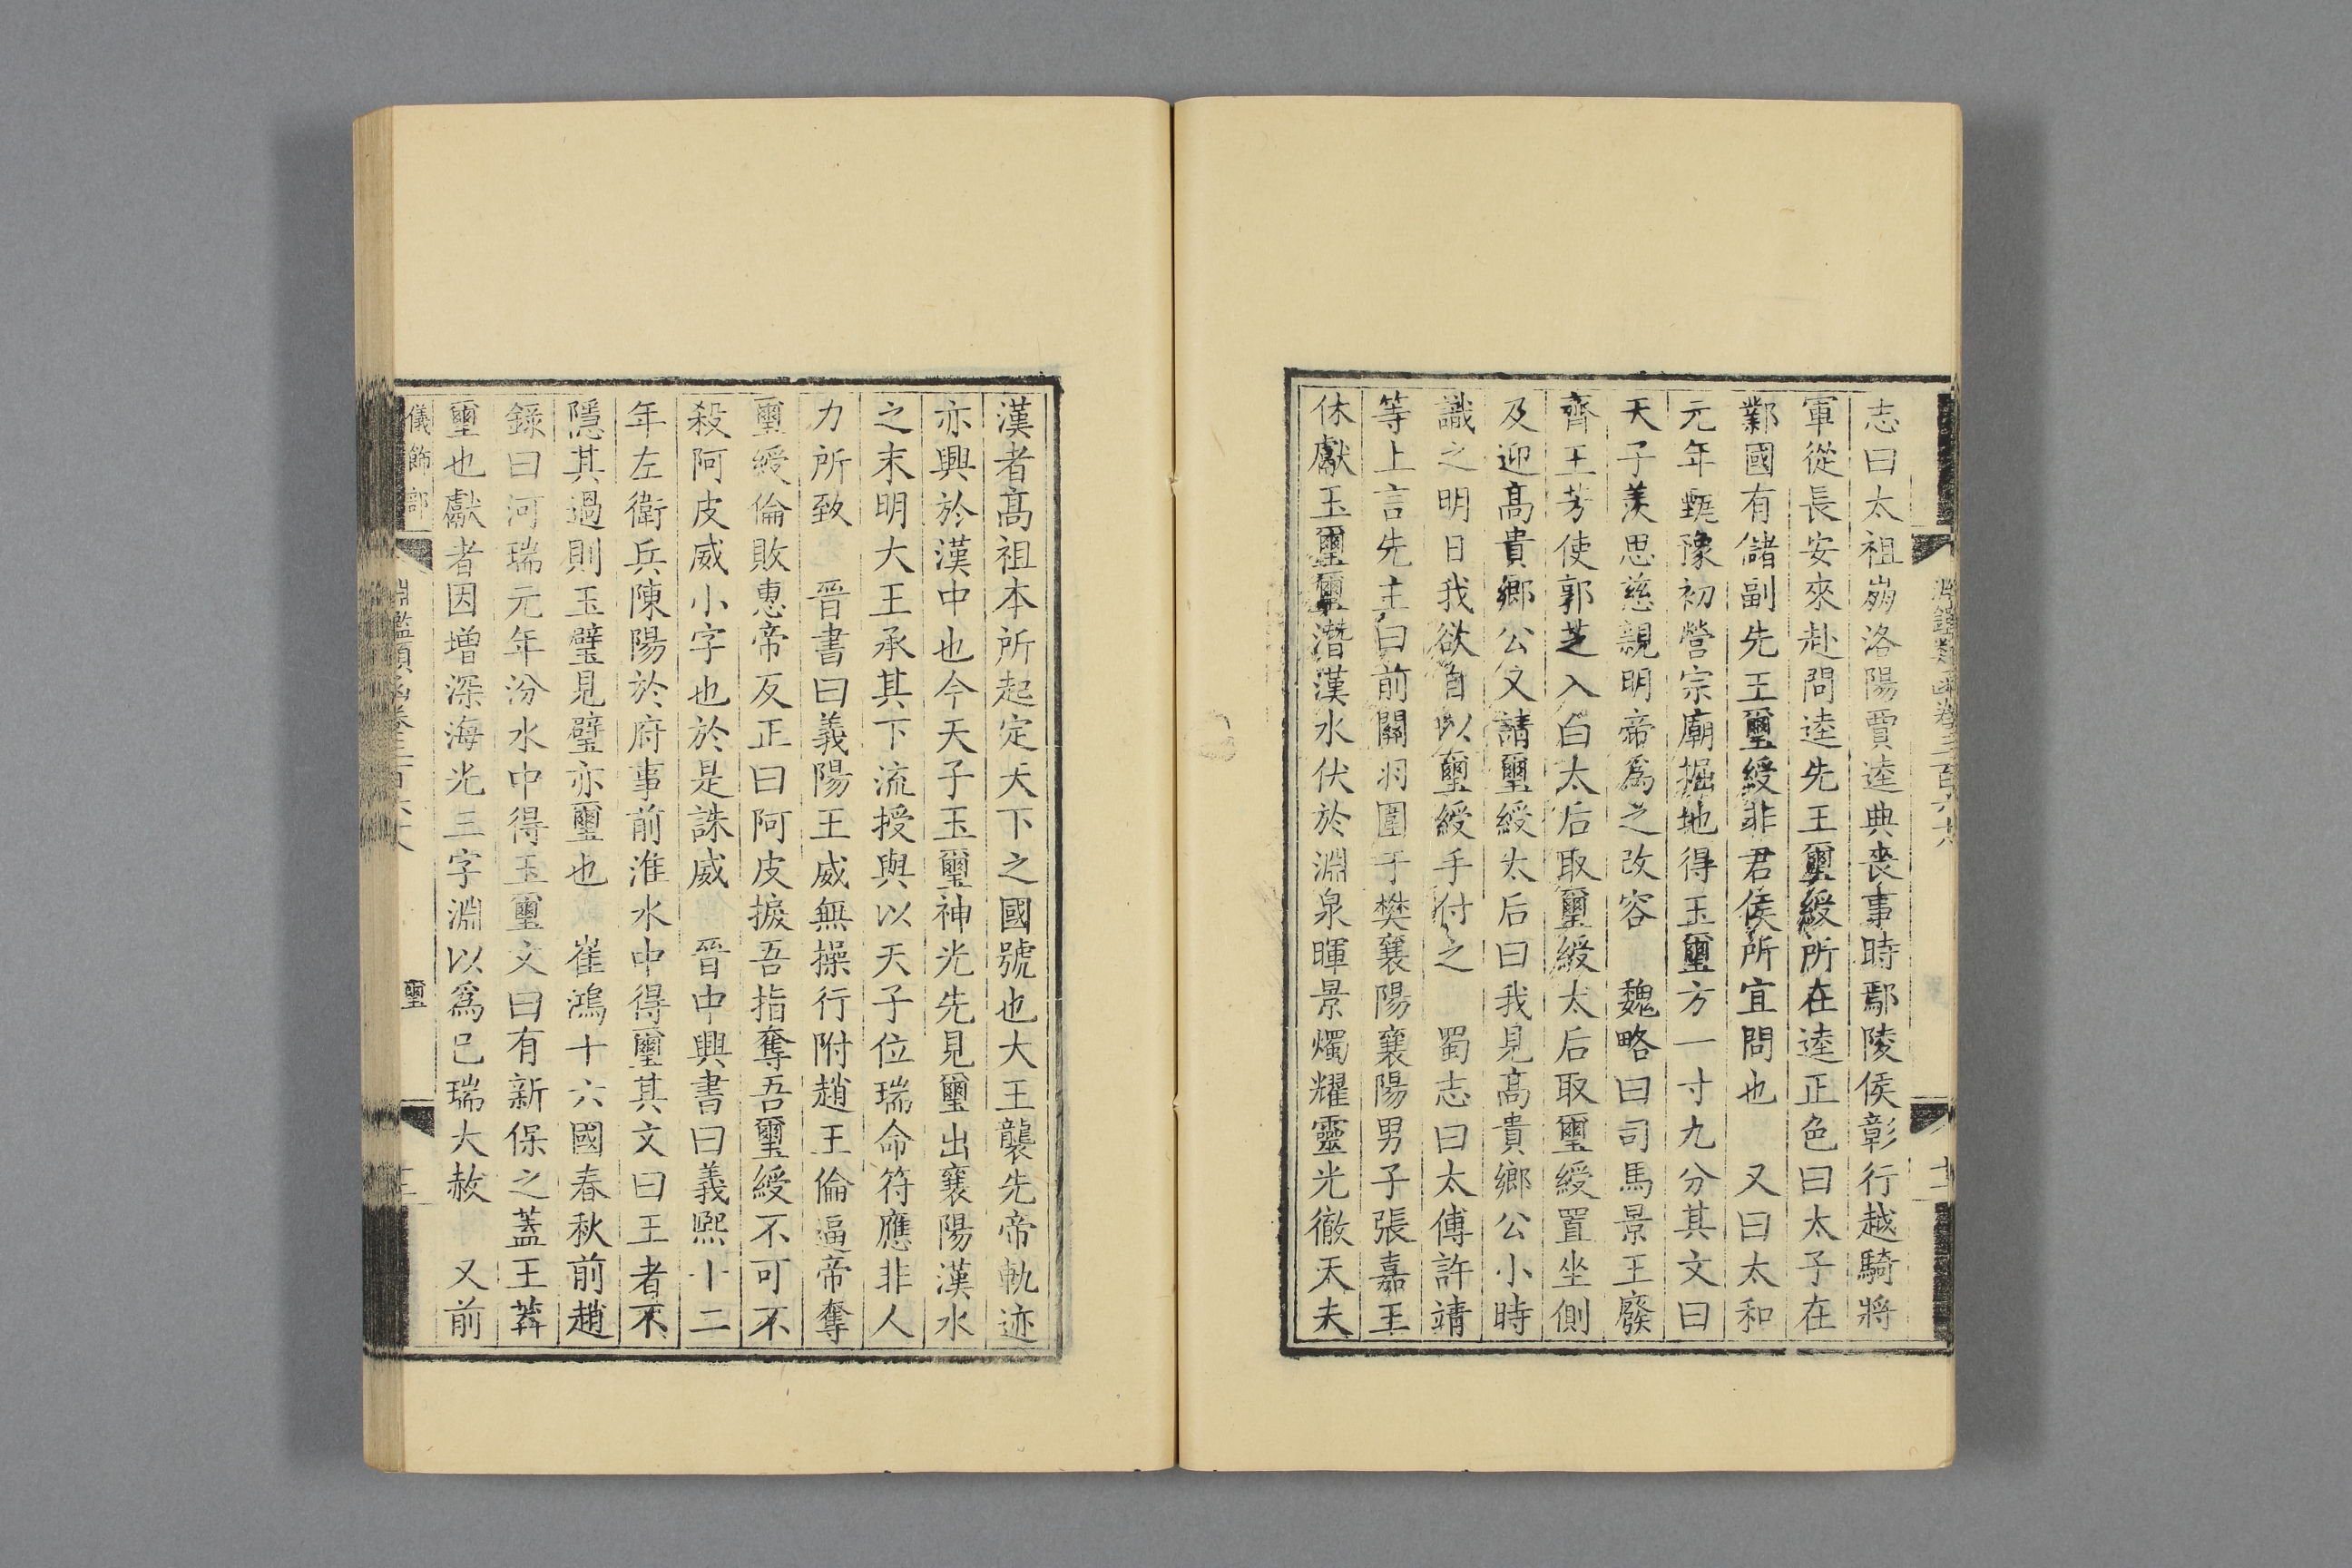 志曰太祖崩洛陽賈逵典喪事時鄢陵侯彰行越騎將
軍從長安來赴問逵先王璽綬所在逵正色曰太子在
鄴國有儲副先王璽綬非君侯所宜問也 又曰太和
元年甄豫初營宗廟掘地得玉璽方一寸九分其文曰
天子羨思慈親明帝爲之改容 魏略曰司馬景王廢
齊王芳使郭芝入白太后取璽綬太后取璽綬置坐側
及迎高貴鄉公又請璽綬太后曰我見高貴鄉公小時
識之明日我欲自以璽綬手付之 蜀志曰太傅許靖
等上言先主曰前關羽圍于樊襄陽襄陽男子張嘉王
休獻玉璽璽潛漢水伏於淵泉暉景燭耀靈光徹天夫
漢者高祖本所起定天下之國號也大王襲先帝軌迹
亦興於漢中也今天子玉璽神光先見璽出襄陽漢水
之末明大王承其下流授與以天子位瑞命符應非人
力所致 晉書曰義陽王威無操行附趙王倫逼帝奪
璽綬倫敗惠帝反正曰阿皮捩吾指奪吾璽綬不可不
殺阿皮威小字也於是誅威 晉中興書曰義熙十二
年左衛兵陳陽於府事前淮水中得璽其文曰王者不
隱其過則玉璧見璧亦璽也 崔鴻十六國春秋前趙
錄曰河瑞元年汾水中得玉璽文曰有新保之蓋王莽
璽也獻者因增深海光三字淵以爲己瑞大赦 又前
儀飾部
璽